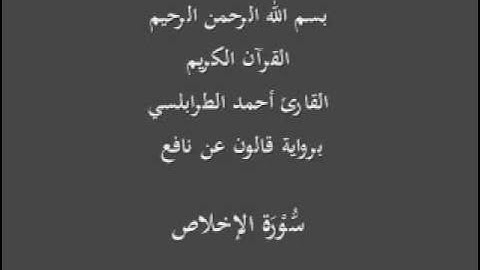 بسم الله الرحمن الرحيم
القرآن الكريم
القارئ أحمد الطرابلسي
برواية قالون عن نافع
سُّوْرَة الإخلاص